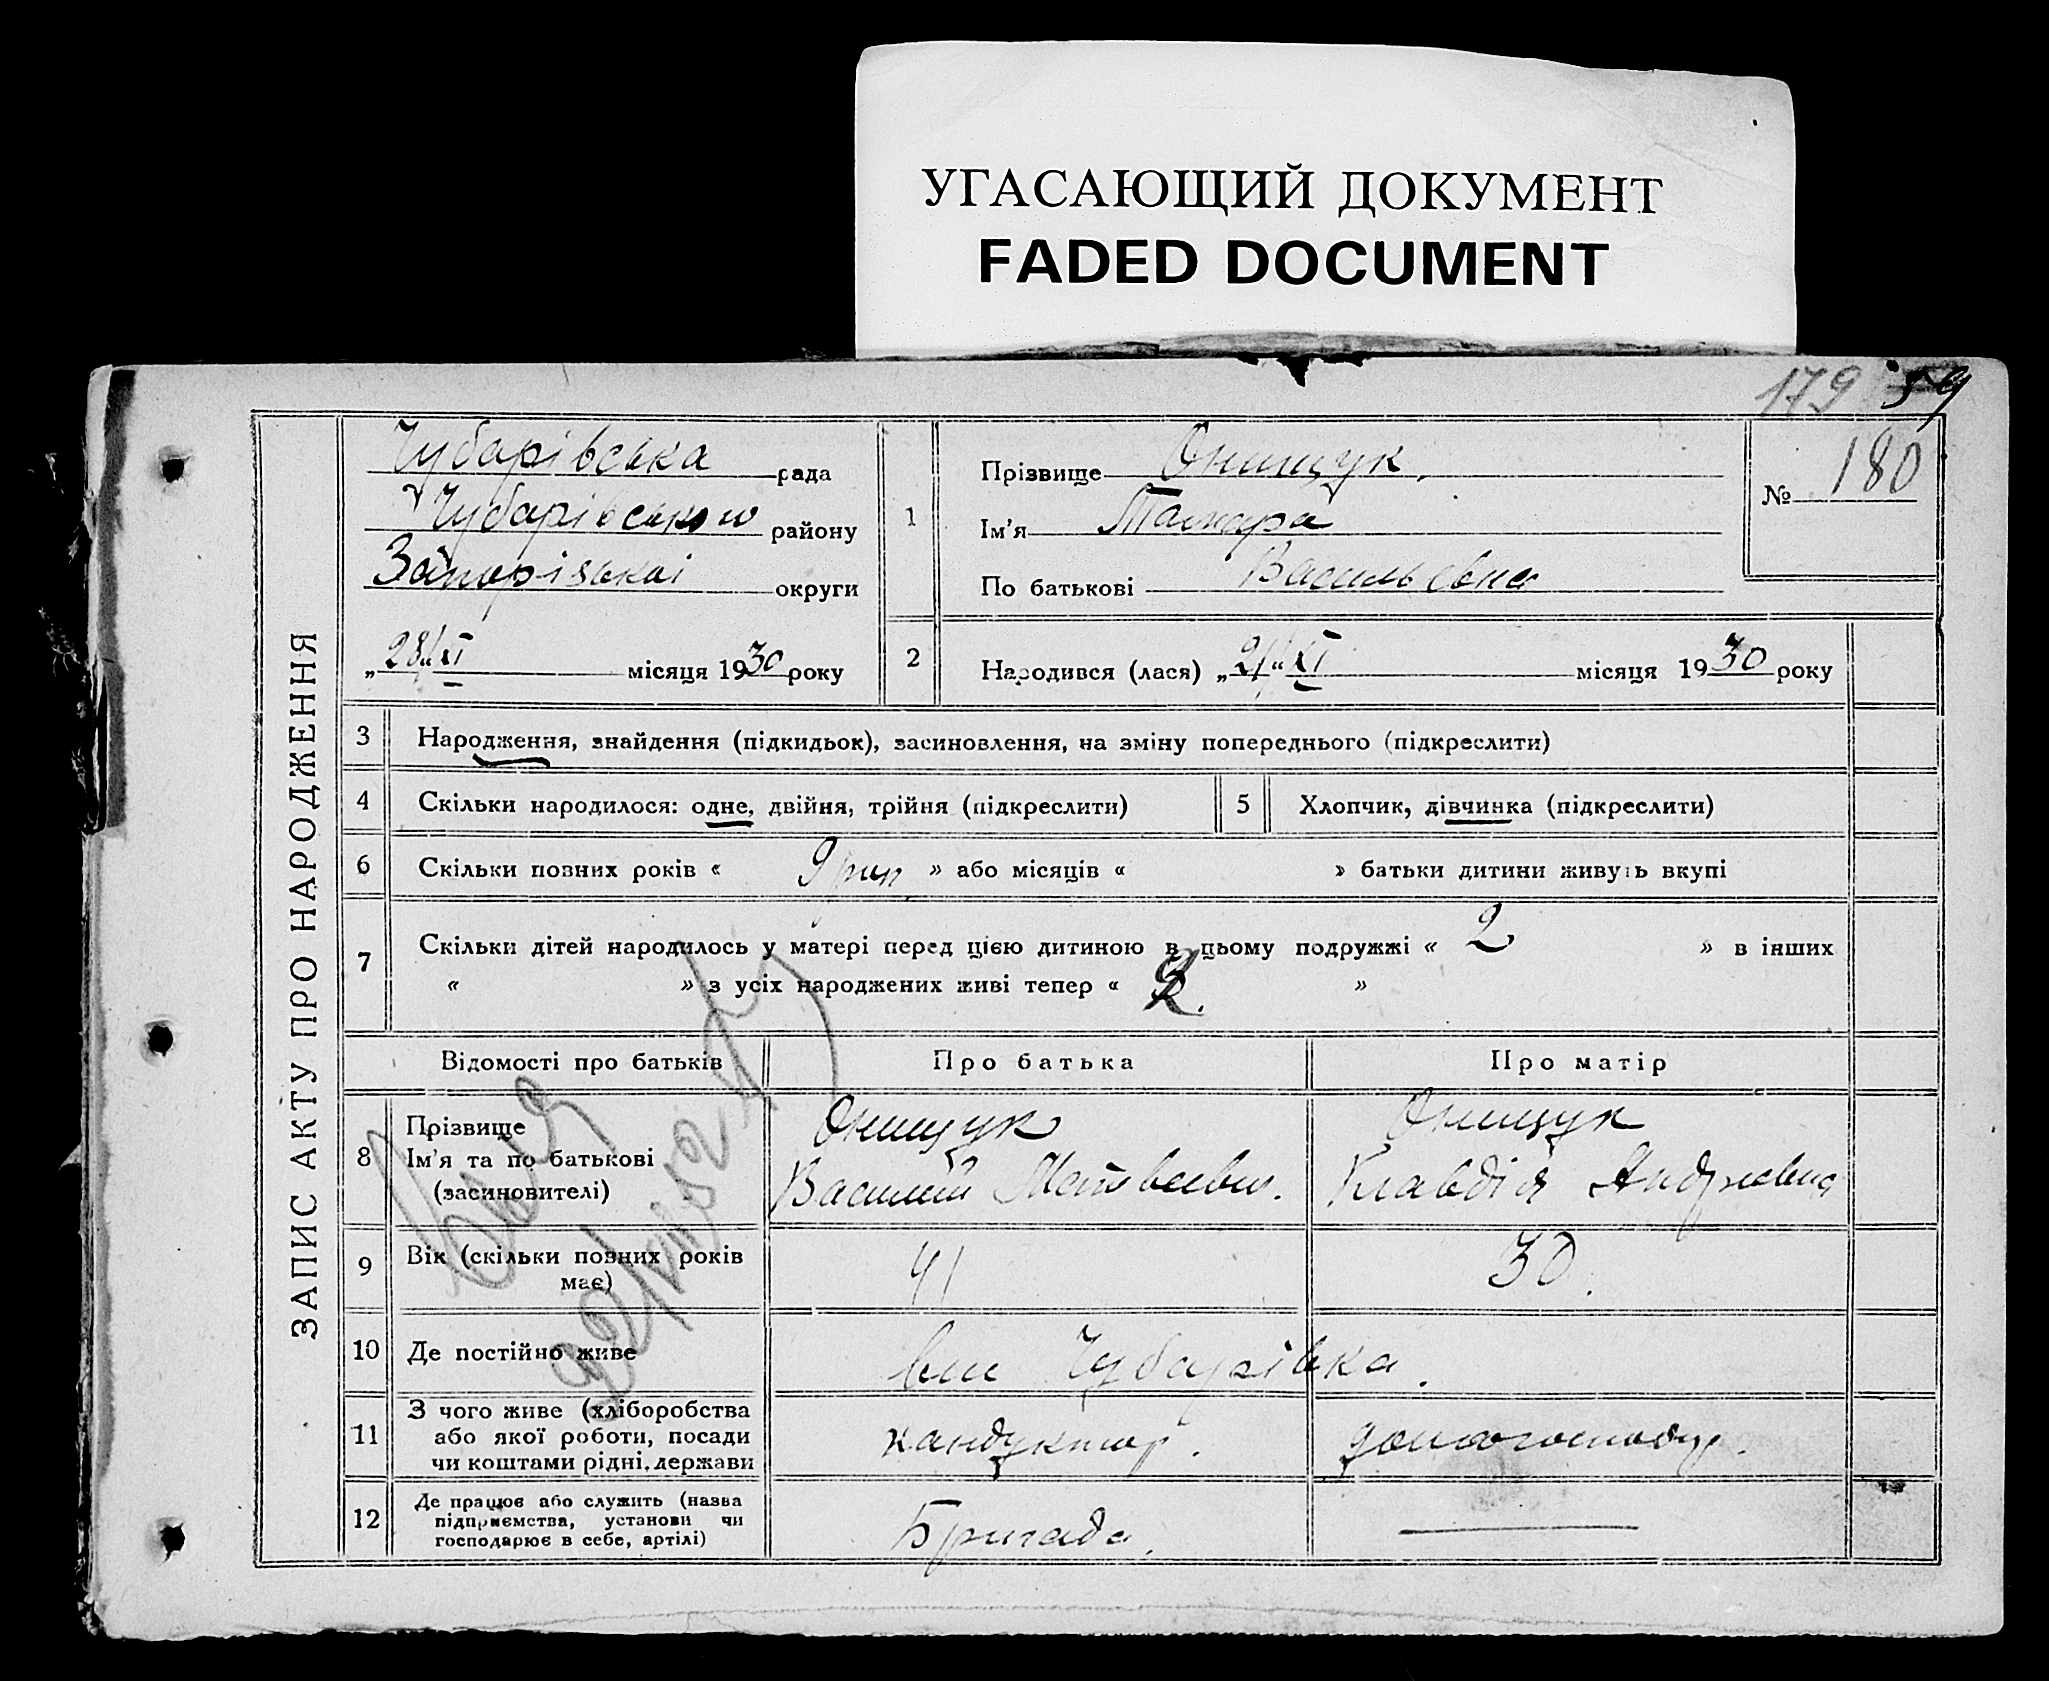 УГАСАЮЩИЙ ДОКУМЕНТ
FADED DOCUMENT
179 59
ЗАПИС АКТУ ПРО НАРОДЖЕННЯ
Чубарівська рада
Чубарівського району
Запорізької округи
„28“ XI місяця 1930 року
1
Прізвище Онищук
Ім'я Тамара
По батькові Васильевна
№ 180
2 Народився (лася) „21“ XI місяця 1930 року
3 Народження, знайдення (підкидьок), засиновлення, на зміну попереднього (підкреслити)
4 Скільки народилося: одне, двійня, трійня (підкреслити) 5 Хлопчик, дівчинка (підкреслити)
6 Скільки повних років « 9 » або місяців « » батьки дитини живуть вкупі
7 Скільки дітей народилось у матері перед цією дитиною в цьому подружжі « 2 » в інших
« » з усіх народжених живі тепер « »
Відомості про батьків Про батька Про матір
8 Прізвище
Ім'я та по батькові
(засиновителі)
Онищук
Василий Матвеевич.
Онищук
Клавдія Андреевна
9 Вік (скільки повних років
має)
41 30.
10 Де постійно живе Чубарівка.
11 З чого живе (хліборобства
або якої роботи, посади
чи коштами рідні, держави
кандуктор.
12 Де працює або служить (назва
підприємства, установи чи
господарює в себе, артілі)
Бригада.